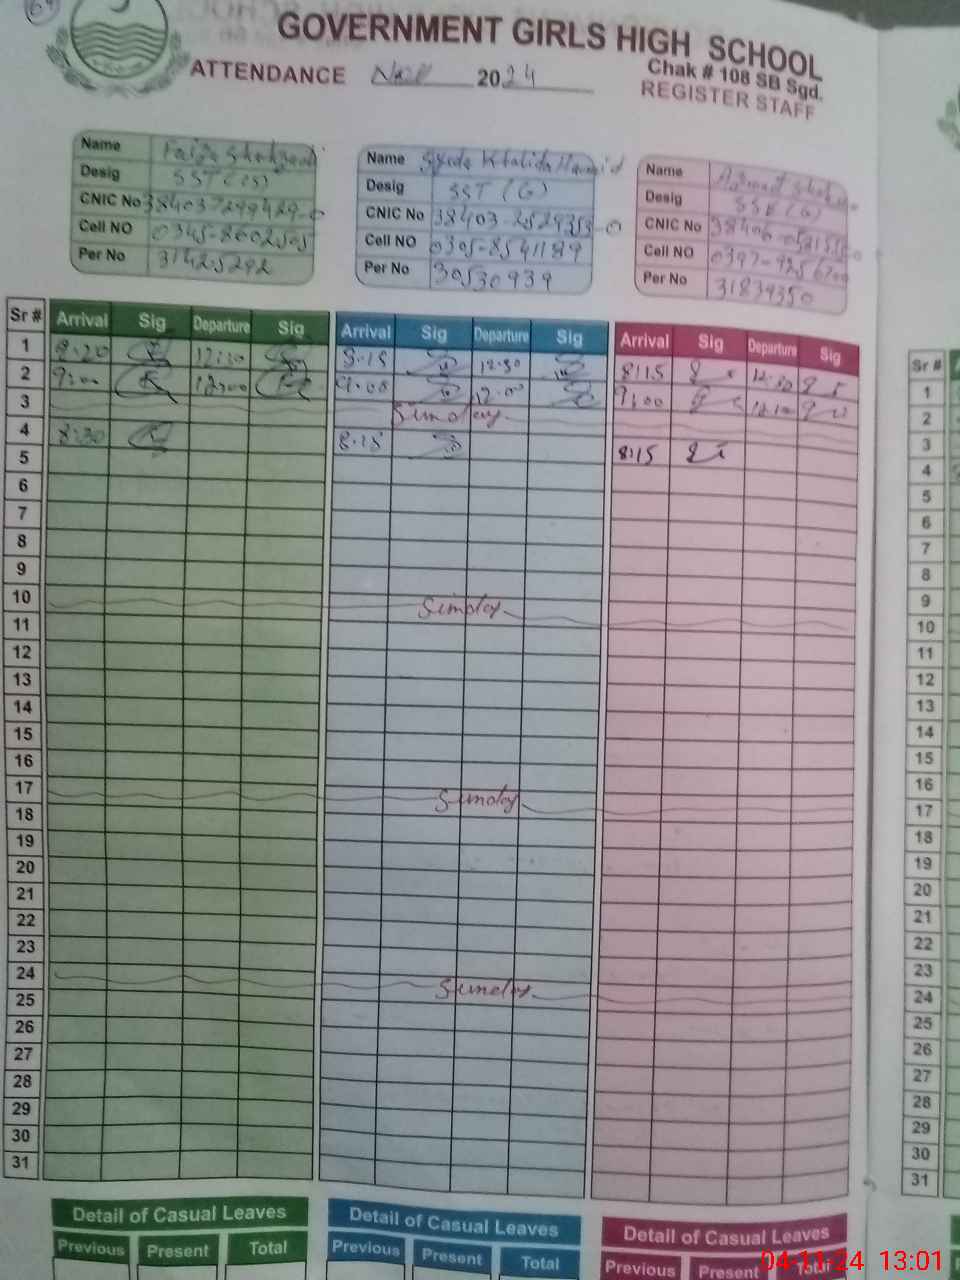 GOVERNMENT GIRLS HIGH SCHOOL
Chak # 108 SB Sgd.
ATTENDANCE Nov 2024
REGISTER STAFF
Name Faiza Shahzadi
Desig SST (Cs)
CNIC No 3840372994290
Cell NO 0345-8602505
Per No 31425292
Name Syeda Khalida Hamid
Desig SST (G)
CNIC No 38403-2529353-0
Cell NO 0305-8541189
Per No 30530939
Name
Desig SSE (G)
CNIC No
Cell NO
Per No 31839350
Sr # Arrival Sig Departure Sig Arrival Sig Departure Sig Arrival Sig Departure Sig Sr #
1 8.20 8.15 12.30 8:15 12:30
2 9:00 12:00 9.00 12.00 9:00 1
3 Sunday 2
4 8:30 8.15 8:15 3
5 4
6 5
7 6
8 7
9 8
10 Sunday 9
11 10
12 11
13 12
14 13
15 14
16 15
17 Sunday 16
18 17
19 18
20 19
21 20
22 21
23 22
24 Sunday 23
25 24
26 25
27 26
28 27
29 28
30 29
31 30
31
Detail of Casual Leaves Detail of Casual Leaves Detail of Casual Leaves
Previous Present Total Previous Present Total Previous Present Total
04-11-24 13:01